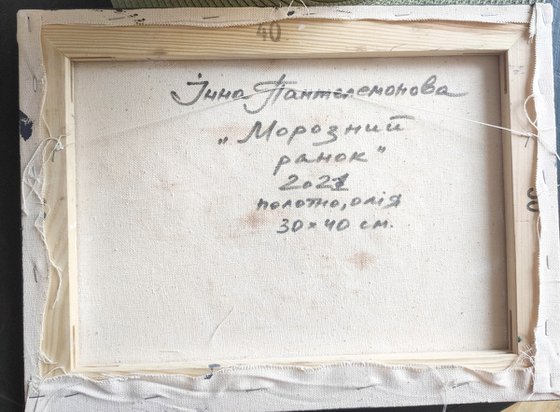 40
Інна Пантелемонова
„Морозний
ранок"
2021
полотно, олія
30×40 см.
30